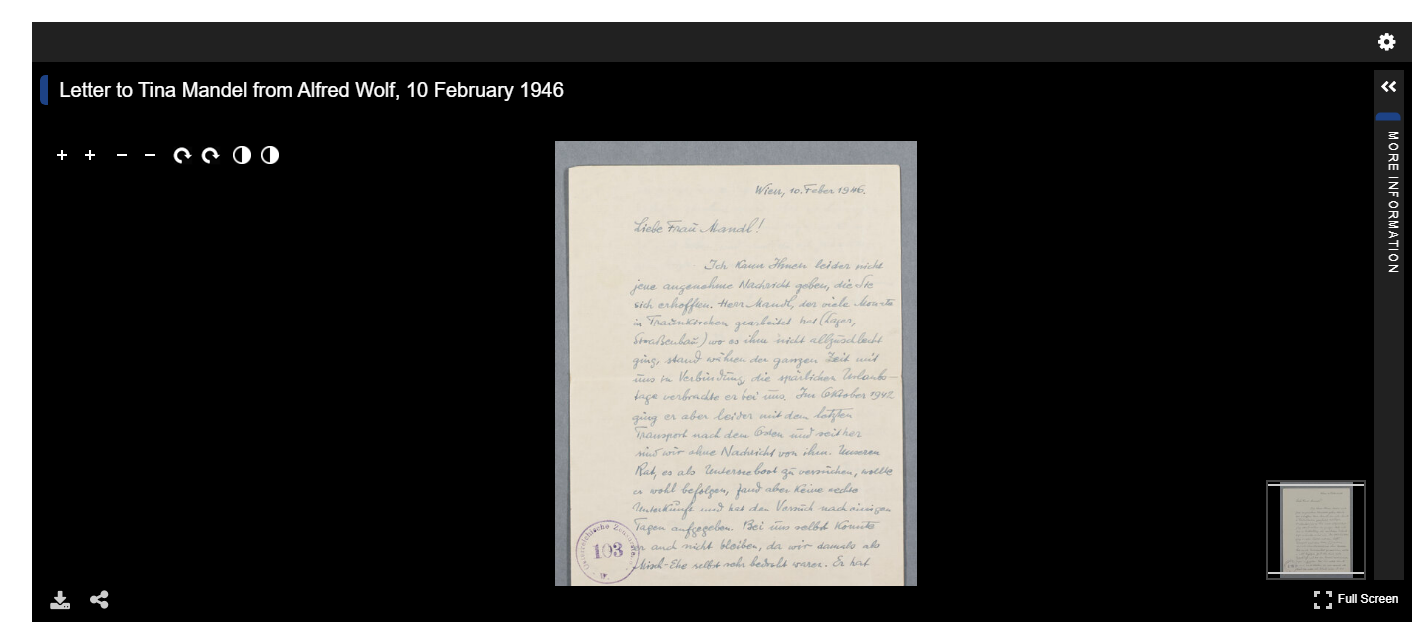 Letter to Tina Mandel from Alfred Wolf, 10 February 1946
MORE INFORMATION
Wien, 10. Feber 1946.
Liebe Frau Mandl!
Ich kann Ihnen leider nicht
jene angenehme Nachricht geben, die Sie
sich erhofften. Herr Mandl, der viele Monate
in Traunkirchen gearbeitet hat (Lager,
Straßenbau) wo es ihm nicht allzuschlecht
ging, stand währen der ganzen Zeit mit
uns in Verbindung, die spärlichen Urlaubs-
tage verbrachte er bei uns. Im Oktober 1942
ging er aber leider mit dem letzten
Transport nach dem Osten und seither
sind wir ohne Nachricht von ihm. Unseren
Rat, es als Unterseeboot zu versuchen, wollte
er wohl befolgen, fand aber keine rechte
Unterkünfte und hat den Versuch nach einigen
Tagen aufgegeben. Bei uns selbst konnte
er auch nicht bleiben, da wir damals als
Misch-Ehe selbst sehr bedroht waren. Er hat
103
Full Screen